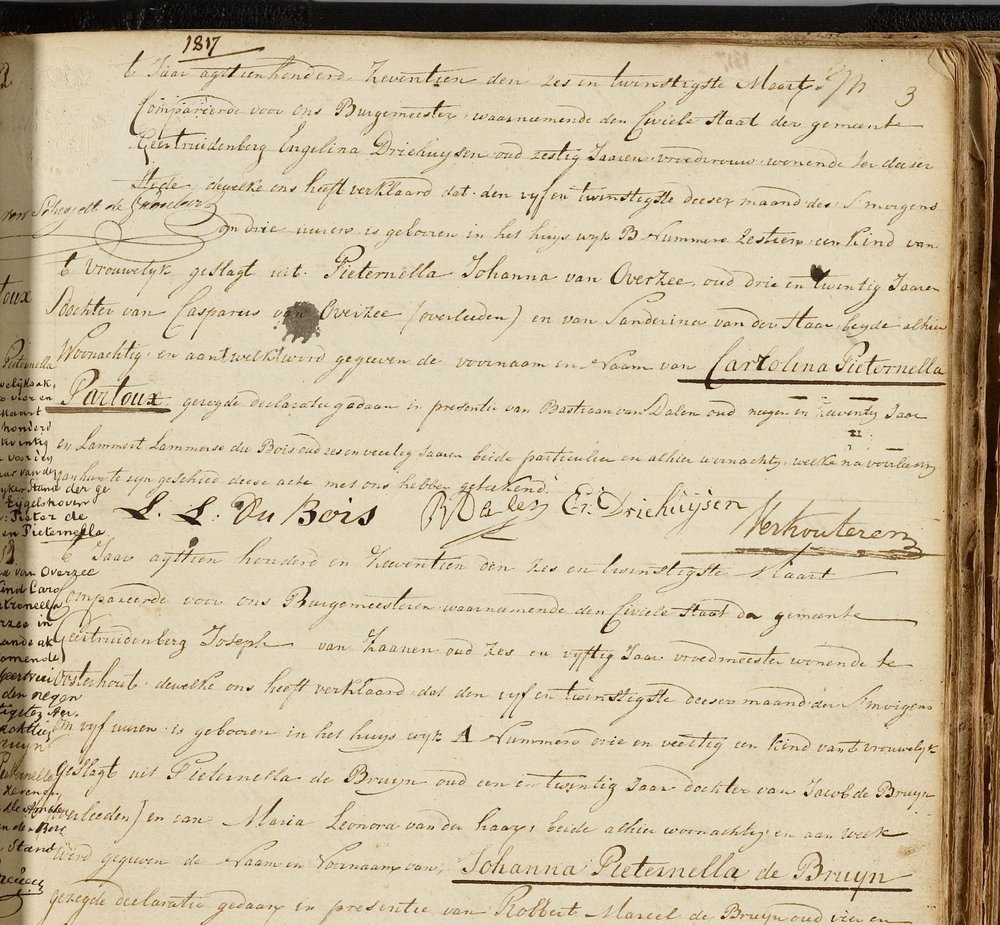 1817
3
t Jaar agttienhonderd Zeventien den zes en twinstigste Maart
Compareerde voor ons Burgemeester, waarneemende den Civiele Staat der gemeente
Geertruidenberg Engelina Driehuijsen oud zestig Jaaren vroedvrouw wonende ter deeser
Stede, dewelke ons heeft verklaard dat den vyf en twinstigste deeser maand des S'morgens
om drie uuren is gebooren in het huys wyk B Nummero Zestien een kind van
t Vrouwelyk geslagt uit Pieternella Johanna van Overzee, oud drie en twintig Jaaren
Dochter van Casparus van Overzee (overleeden) en van Sanderina van der Staar, beyde alhier
Woonachtig, en aan t welk werd gegeven de voornaam en Naam van Carzolina Pieternella
Partoux, gezegde declaratie gedaan in presentie van Bastiaan van Dalen oud negen en zeventig Jaar
en Lammert Lammerse du Bois oud zes en veertig Jaaren beide particulier en alhier woonachtig, welke na voorleesing
aan hun te zyn geschied deese acte met ons hebben geteekend.
L. L. Du Bois BVDalen E: Driehuijsen
Verhouteren
t Jaar agttien honderd en Zeeventien den zes en twinstigste Maart
Compareerde voor ons Burgemeesteren waarnamende den Civiele Staat da gemeente
Geertruidenberg Joseph van Zaanen oud Zes en vyftig Jaar vroedmeester wonende te
Oosterhout, dewelke ons heeft verklaard dat den vyf en twinstigste deeser maand des S'morgens
om vyf uuren is gebooren in het huys wyk A Nummero drie en veertig een kind van t vrouwelyk
geslagt uit Pieternella de Bruyn oud een en twintig Jaar dochter van Jacob de Bruyn
(overleeden) en van Maria Leonora van der haar, beide alhier woonachtig, en aan welk
Werd gegeven de Naam en Voornaam van, Johanna Pieternella de Bruyn
gezegde declaratie gedaan in presentie van Robbert Marcel de Bruyn oud vier en